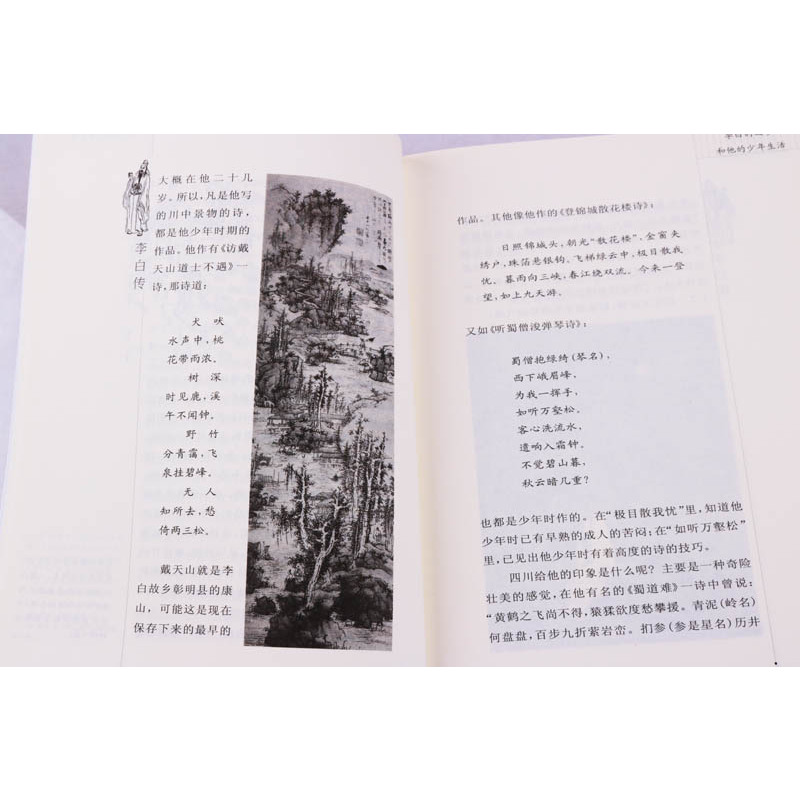 李白传
大概在他二十几
岁。所以,凡是他写
的川中景物的诗,
都是他少年时期的
作品。他作有《访戴
天山道士不遇》一
诗,那诗道:
犬吠
水声中,桃
花带雨浓。
树深
时见鹿,溪
午不闻钟。
野竹
分青霭,飞
泉挂碧峰。
无人
知所去,愁
倚两三松。
戴天山就是李
白故乡彰明县的康
山,可能这是现在
保存下来的最早的
和他的少年生活
作品。其他像他作的《登锦城散花楼诗》:
日照锦城头,朝光“散花楼”,金窗夹
绣户,珠箔悬银钩。飞梯绿云中,极目散我
忧。暮雨向三峡,春江绕双流。今来一登
望,如上九天游。
又如《听蜀僧浚弹琴诗》:
蜀僧抱绿绮(琴名),
西下峨眉峰,
为我一挥手,
如听万壑松。
客心洗流水,
遗响入霜钟。
不觉碧山暮,
秋云暗几重?
也都是少年时作的。在“极目散我忧”里,知道他
少年时已有早熟的成人的苦闷;在“如听万壑松”
里,已见出他少年时有着高度的诗的技巧。
四川给他的印象是什么呢?主要是一种奇险
壮美的感觉,在他有名的《蜀道难》一诗中曾说:
“黄鹤之飞尚不得,猿猱欲度愁攀援。青泥(岭名)
何盘盘,百步九折萦岩峦。扪参(参是星名)历井